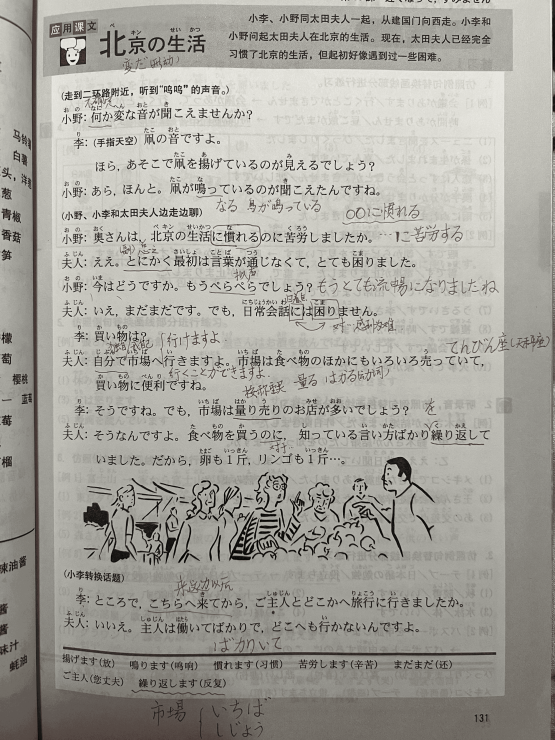 应用课文 北京の生活
小李、小野同太田夫人一起，从建国门向西走。小李和
小野问起太田夫人在北京的生活。现在，太田夫人已经完全
习惯了北京的生活，但起初好像遇到过一些困难。
(走到二环路附近，听到“呜呜”的声音。)
小野：何か変な音が聞こえませんか？
李：(手指天空) 凧の音ですよ。
ほら、あそこで凧を揚げているのが見えるでしょう？
小野：あら、ほんと。凧が鳴っているのが聞こえたんですね。
なる 鳥が鳴っている
〇〇に慣れる
(小野、小李和太田夫人边走边聊)
小野：奥さんは、北京の生活に慣れるのに苦労しましたか。
に苦労する
夫人：ええ。とにかく最初は言葉が通じなくて、とても困りました。
小野：今はどうですか。もうぺらぺらでしょう？
もうとても流暢になりましたね
夫人：いえ、まだまだです。でも、日常会話には困りません。
李：買い物は？
「行けますよ
夫人：自分で市場へ行きますよ。市場は食べ物のほかにもいろいろ売っていて、
てんびん座
買い物に便利ですね。
行くことができますよ。
量る はかる
李：そうですね。でも、市場は量り売りのお店が多いでしょう？
を
夫人：そうなんですよ。食べ物を買うのに、知っている言い方ばかり繰り返して
いました。だから、卵も1斤，リンゴも1斤…。
(小李转换话题)
李：ところで、こちらへ来てから、ご主人とどこかへ旅行に行きましたか。
夫人：いいえ。主人は働いてばかりで、どこへも行かないんですよ。
ばかりいて
揚げます(放) 鳴ります(鸣响) 慣れます(习惯) 苦労します(辛苦) まだまだ(还)
ご主人(您丈夫) 繰り返します(反复)
市場 いちば
しじょう
131